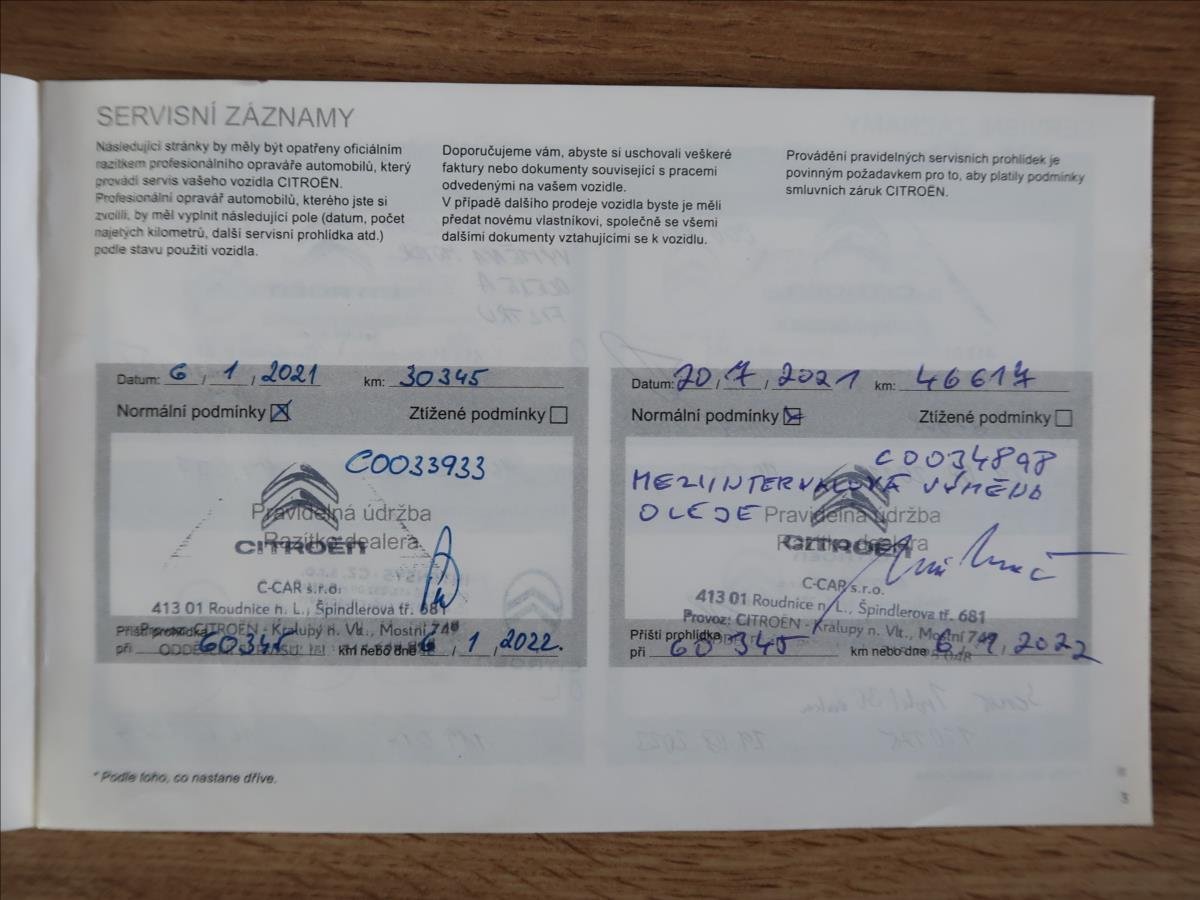 SERVISNÍ ZÁZNAMY
Následující stránky by měly být opatřeny oficiálním
razítkem profesionálního opraváře automobilů, který
provádí servis vašeho vozidla CITROËN.
Profesionální opravář automobilů, kterého jste si
zvolili, by měl vyplnit následující pole (datum, počet
najetých kilometrů, další servisní prohlídka atd.)
podle stavu použití vozidla.
Doporučujeme vám, abyste si uschovali veškeré
faktury nebo dokumenty související s pracemi
odvedenými na vašem vozidle.
V případě dalšího prodeje vozidla byste je měli
předat novému vlastníkovi, společně se všemi
dalšími dokumenty vztahujícími se k vozidlu.
Provádění pravidelných servisních prohlídek je
povinným požadavkem pro to, aby platily podmínky
smluvních záruk CITROËN.
Datum: 6 / 1 / 2021 km: 30345
Normální podmínky Ztížené podmínky
C0033933
Pravidelná údržba
Razítko dealera
CITROËN
C-CAR s.r.o.
413 01 Roudnice n. L., Špindlerova tř. 681
Provoz: CITROËN - Kralupy n. Vlt., Mostní 749
Příští prohlídka
při 60345 km nebo dne 6 / 1 / 2022.
Datum: 20 / 7 / 2021 km: 46617
Normální podmínky Ztížené podmínky
C0034898
MEZIINTERVALOVÁ VÝMĚNA
OLEJE
Pravidelná údržba
Razítko dealera
CITROËN
C-CAR s.r.o.
413 01 Roudnice n. L., Špindlerova tř. 681
Provoz: CITROËN - Kralupy n. Vlt., Mostní 749
Příští prohlídka
při 60 345 km nebo dne 6 / 1 / 2022
* Podle toho, co nastane dříve.
3